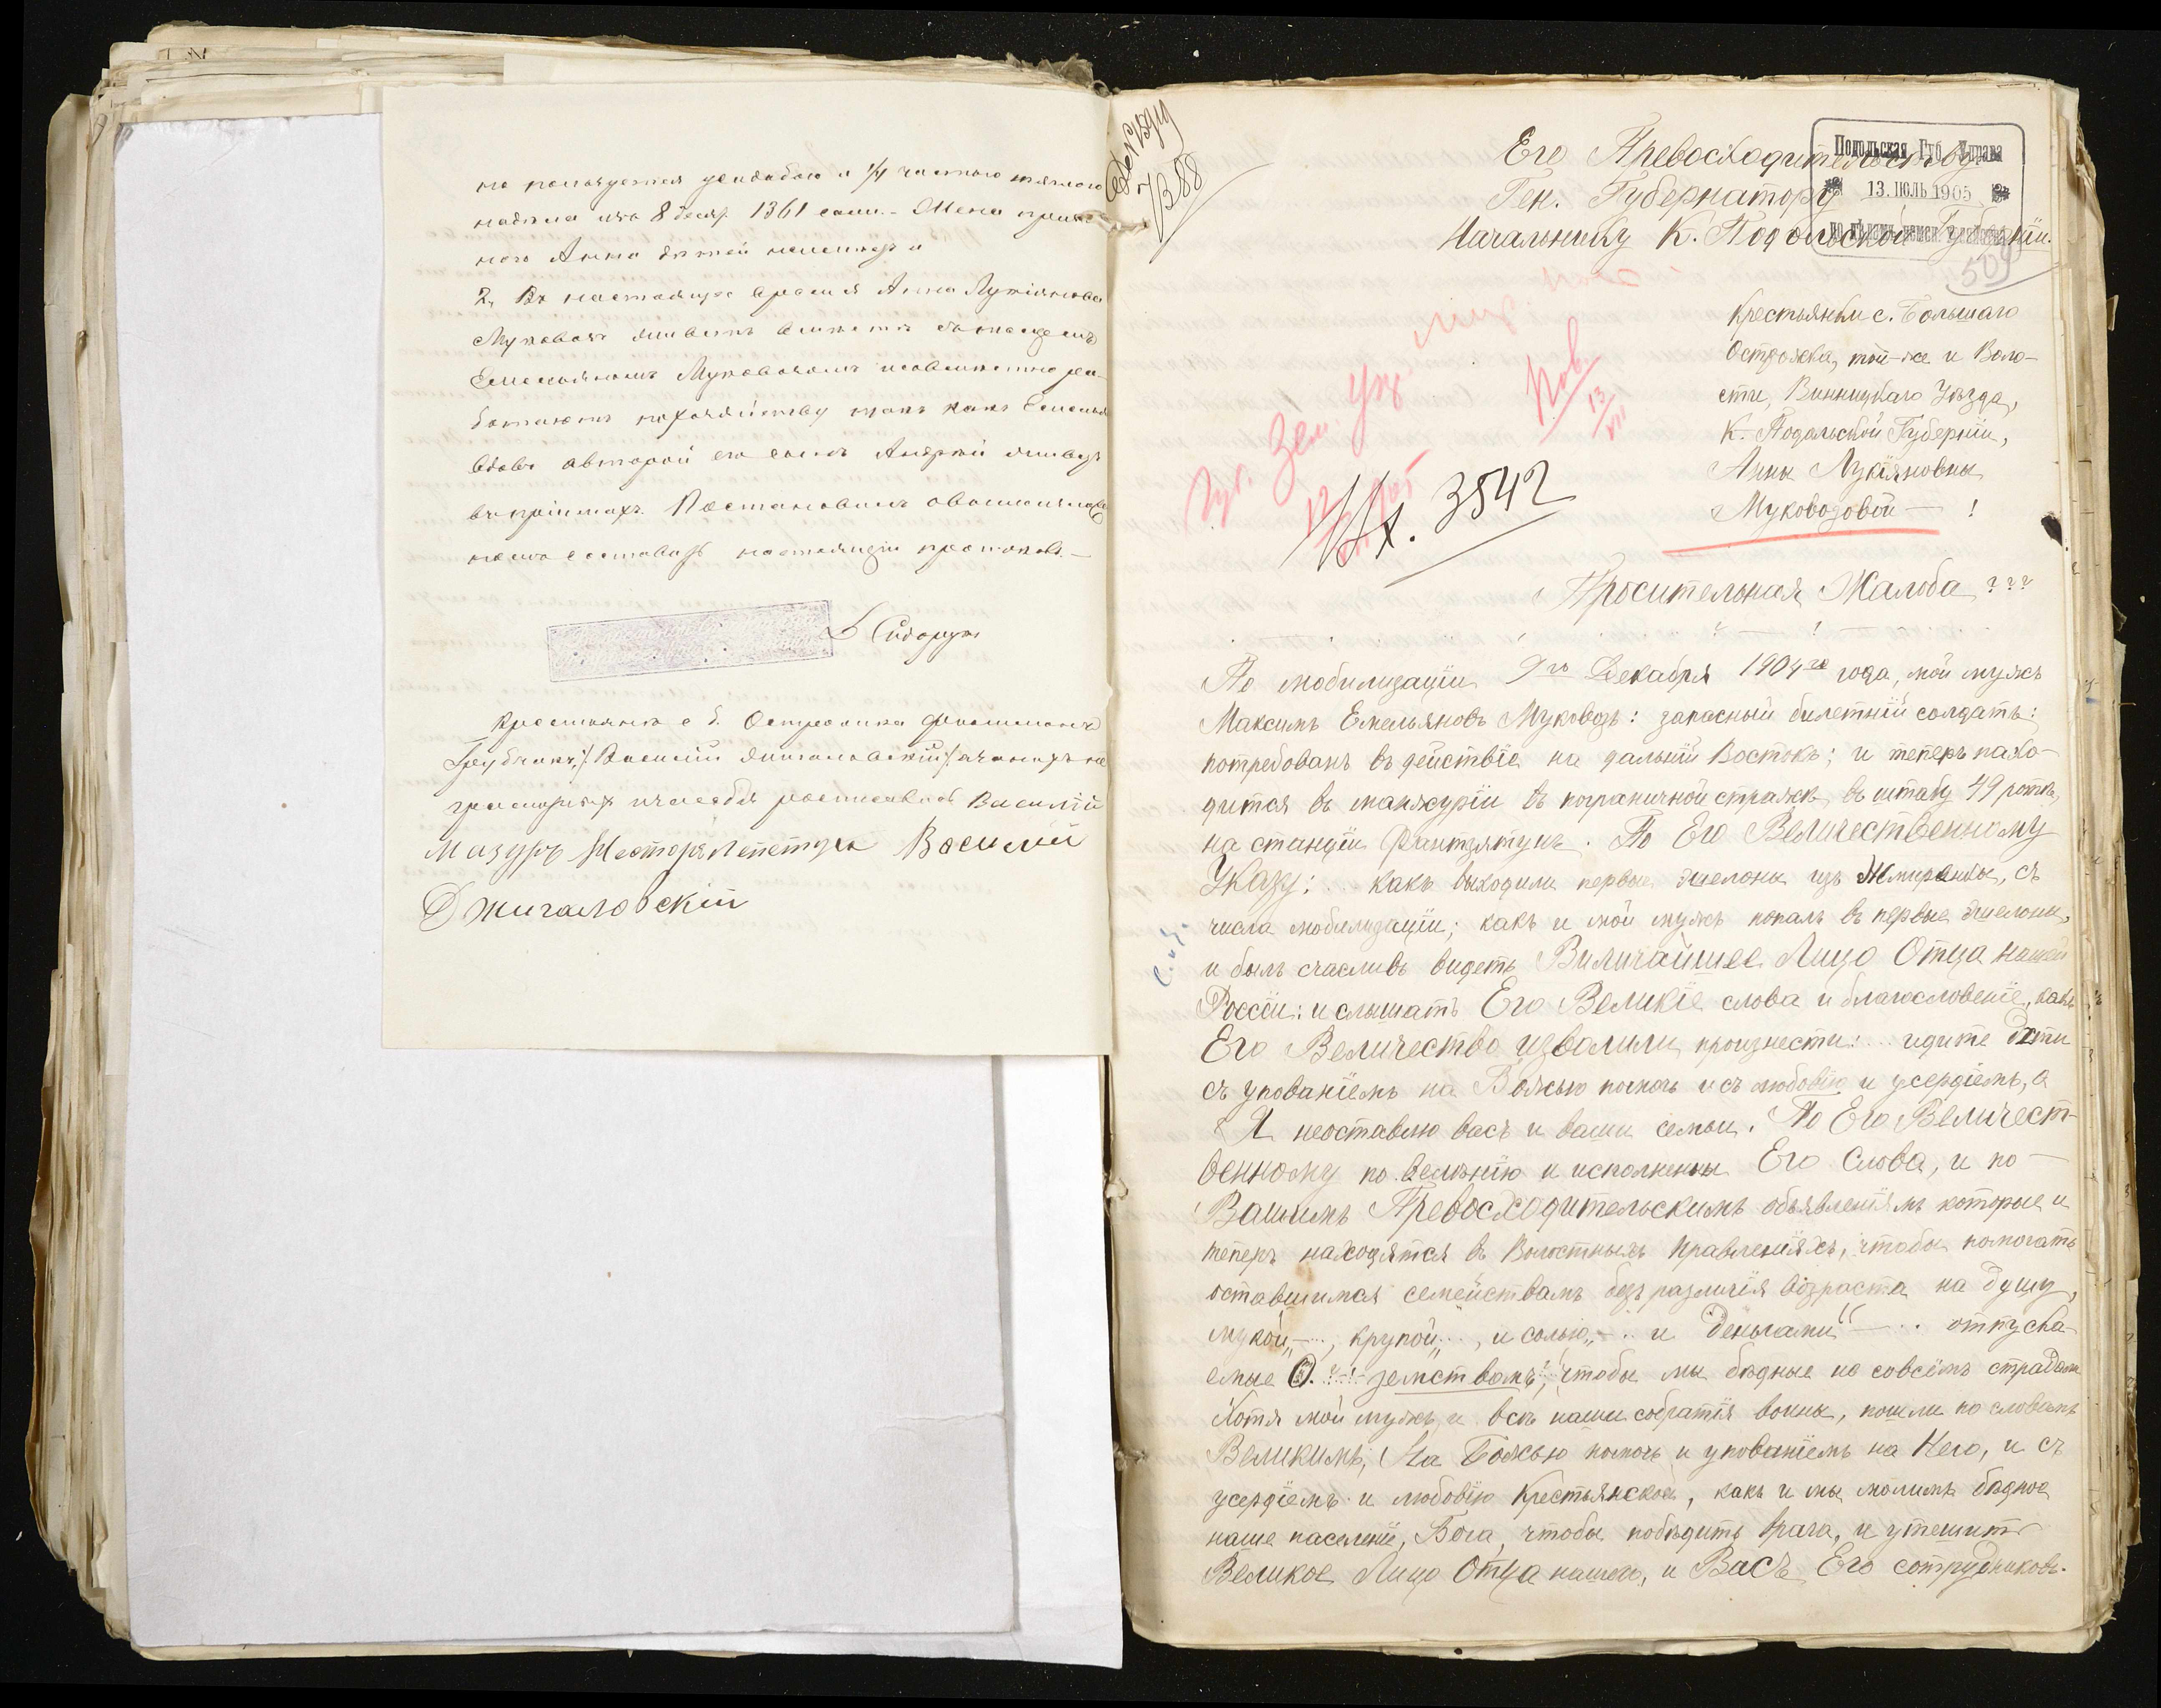 но пользуется усадьбою и 1/4 частью
надѣла изъ 8 десят. 1361 саж. - Жена
него Анна дѣтей неимеетъ и
2, Въ настоящее время Анна Лукіянова
Муковозъ живетъ вмѣстѣ
Емельяномъ Муковозомъ
ботаютъ похозяйству такъ какъ Емельянъ
вдовъ авторой его сынъ Андрей живетъ
въ пріймахъ. Постановилъ
немъ составить настоящій протоколъ. -
Сидорук
Крестьяне с Б. Острожка
Грубнякъ, Василій Джигаловскій, а
неграмотныхъ и засебя росписався Василій
Мазуръ Нестор Лепетуха Василій
Джигаловскій
7388
Его Превосходительству
Ген. Губернатору
Начальнику К. Подольской Губерніи.
Подольская Губ. Управа
13. ІЮЛЬ 1905
509
Крестьянки с. Большаго
Острожка, той-же и Воло-
сти, Винницкаго Уѣзда,
К. Подольской Губерніи,
Анны Лукіяновны
Муковозовой — !
13/VII
Вх. 3542
Просительная Жалоба ???
По мобилизаціи 9го Декабря 1904го года, мой мужъ
Максимъ Емельяновъ Муковозъ: запасный билетній солдатъ:
потребованъ въ действіе на дальній Востокъ; и теперъ нахо-
дится въ манжуріи въ пограничной стражѣ, въ штабу 49 роты,
на станціи Фантзятунь. По Его Величественному
Указу: .. какъ выходили первые эшелоны изъ Жмиренки, съ
числа мобилизаціи; какъ и мой мужъ попалъ въ первые эшелоны,
и былъ счасливъ видеть Виличайшее Лицо Отца Нашей
Россіи: и слышать Его Великіе слова и благословеніе, какъ
Его Величество изволили произнести: ... идите дѣти
съ упованіемъ на Божью помочь и съ любовію и усердіемъ, а
Я неоставлю васъ и ваши семьи. По Его Величест-
венному по велѣнію и исполнены Его Слова, и по —
Вашимъ Превосходительскимъ объявленіямъ которые и
теперъ находятся въ Волостныхъ Правленіяхъ, чтобы помогать
оставшимся семействамъ безъ различія возроста на душу,
мукой„ —.., крупой„ ..., и солью„ —.. и деньгами“ — .. отпуска-
емые О. ?-!- земствомъ, чтобы мы бѣдные не совсемъ страдали
Хотя мой мужъ, и всѣ наши собратія воины, пошли по словамъ
Великимъ, На Божью помочь и упованіемъ на Него, и съ
усердіемъ и любовію Крестьянской, какъ и мы молимъ бѣдное
наше населеніе, Бога, чтобы побѣдить врага, и утешить
Великое Лицо Отца нашего, и Васъ Его сотрудниковъ.